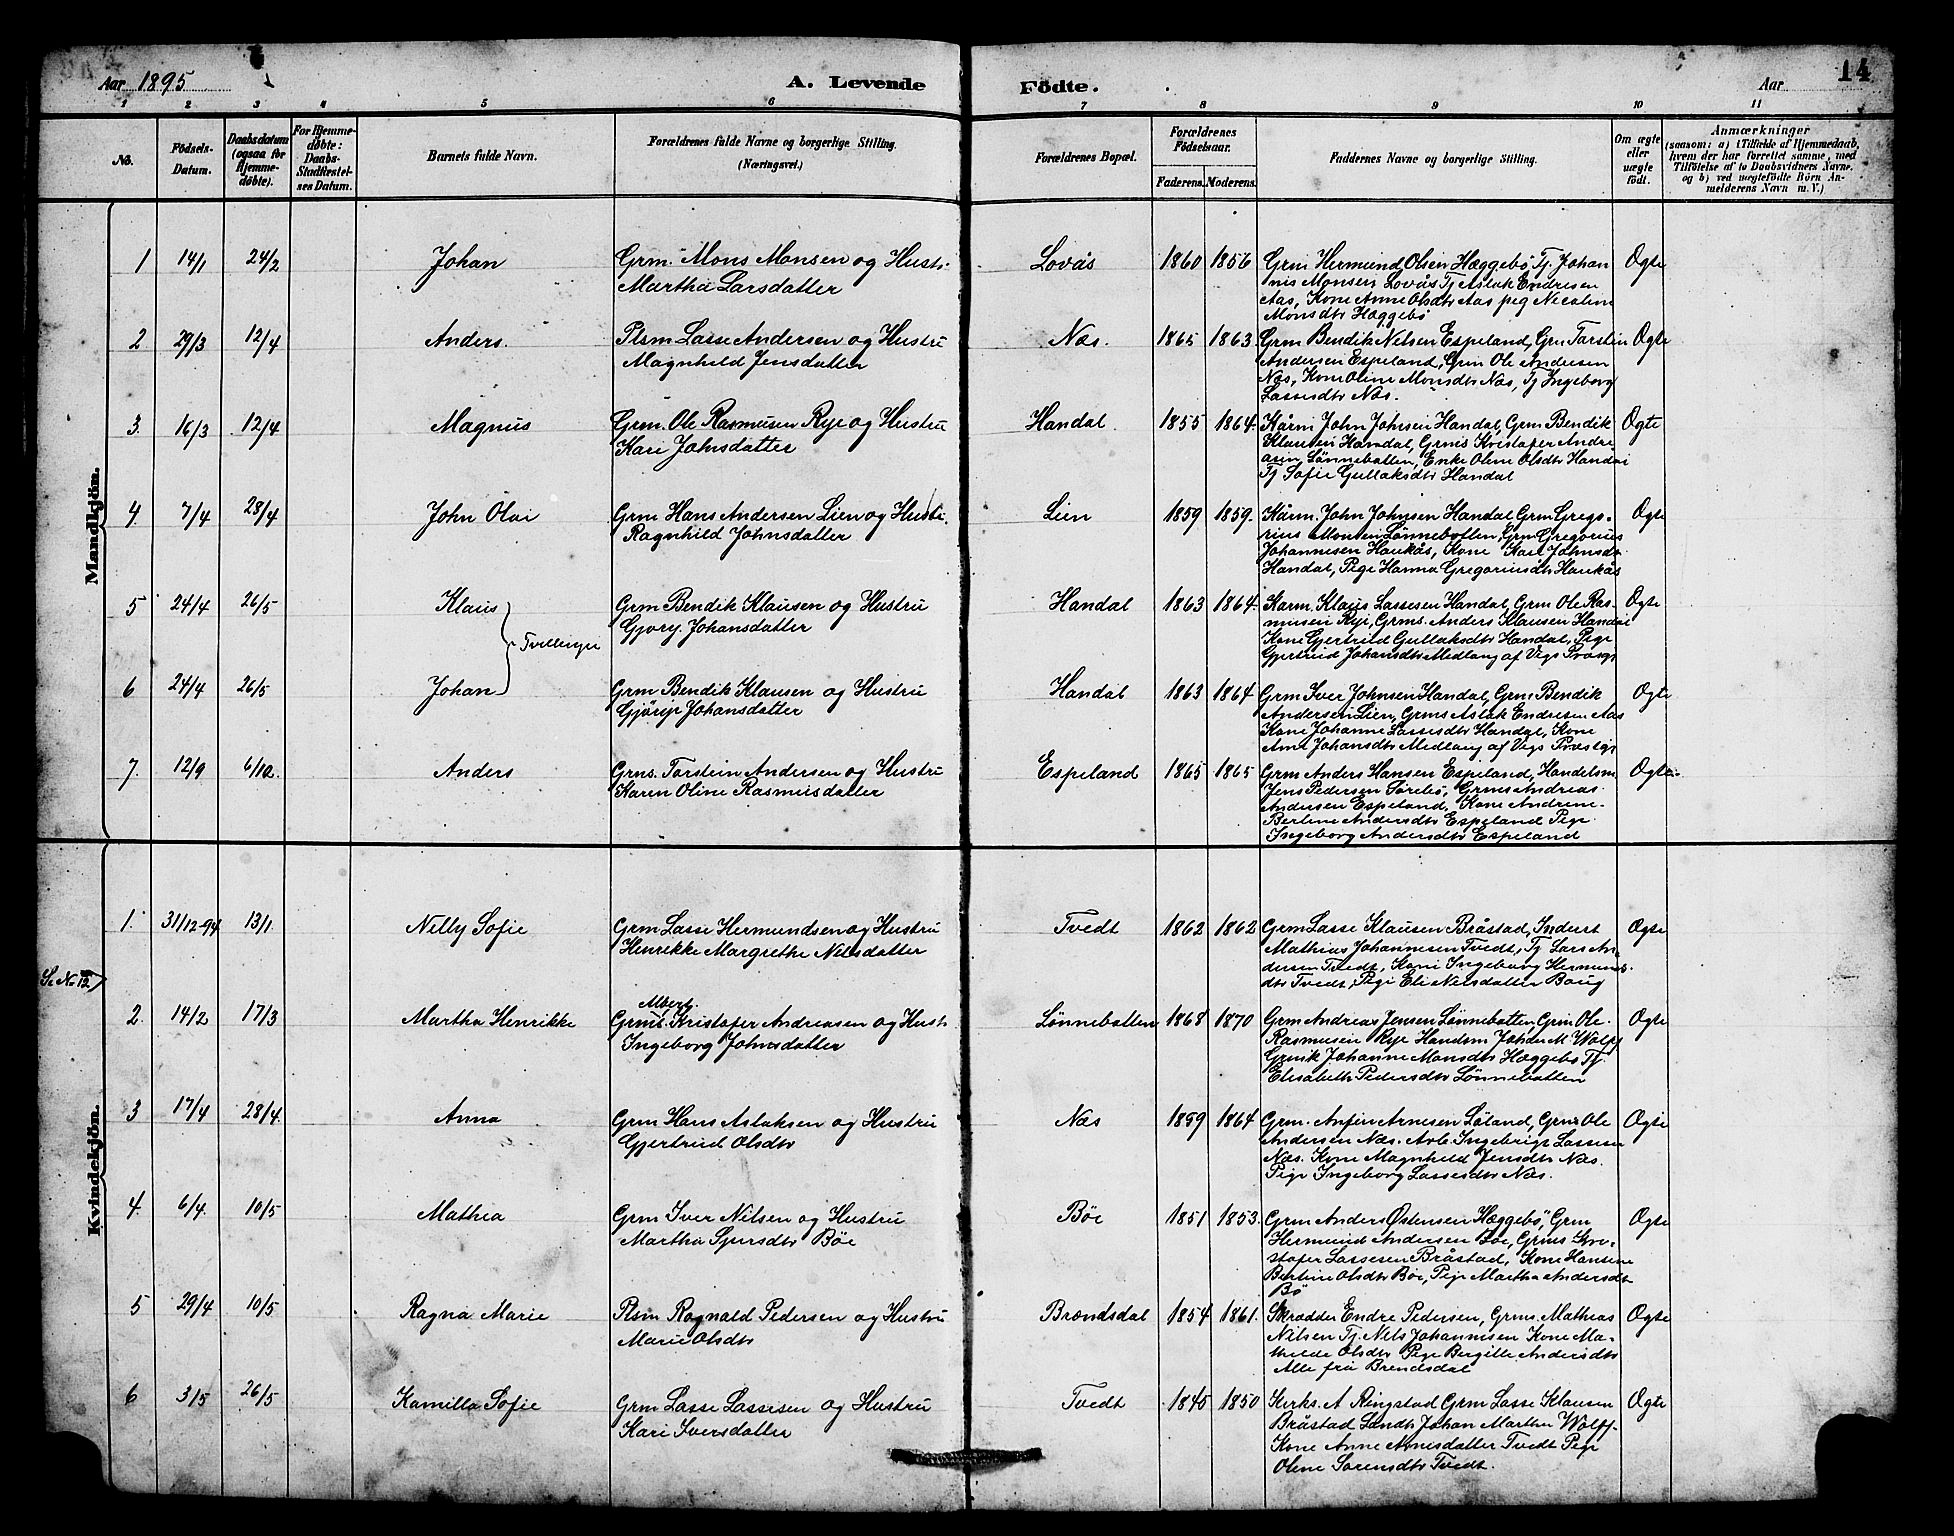 14
Aar 1895
A. Levende
Födte.
Aar
1 2 3 4 5 6 7 8 9 10 11
No.
Födsels-Datum.
Daabsdatum (ogsaa for Hjemme-døbte).
For Hjemme-døbte: Daabs-Stadfæstel-ses Datum.
Barnets fulde Navn.
Forældrenes fulde Navne og borgerlige Stilling.
(Næringsvei.)
Forældrenes Bopæl.
Forældrenes Födselsaar.
Faderens. Moderens.
Faddernes Navne og borgerlige Stilling.
Om ægte eller uægte födt.
Anmærkninger
(saasom: a) i Tilfælde af Hjemmedaab,
hvem der har forrettet samme, med
Tilföielse af to Daabsvidners Navne,
og b) ved uægtefödte Börn An-
melderens Navn m. V.)
Mandkjön.
1 14/1 24/2 Johan Grm. Mons Monsen og Hustr. Lovås 1860 1856 Grm Hermund Olsen Hæggebö, Tj. Johan Ogte
Martha Larsdatter nis Monsen Lovås Tj Aslak Endresen
Aas, Kone Anne Olsdtr Aas peg Nicoline
Monsdtr Hæggebö
2 29/3 12/4 Anders. Plsm Lasse Andersen og Hustru Næs. 1865 1863. Grm Bendik Nelsen Espeland, Grm Torstein Ogte
Magnhild Jensdatter Andersen Espeland, Grm Ole Andersen
Næs, Kone Oline Monsdtr Næs, Tj Ingeborg
Lassesdtr Næs.
3. 16/3 12/4 Magnus Grm. Ole Rasmusen Rye og Hustru Handal. 1855 1864. Kårm John Johnsen Handal, Grm Bendik Ogte
Kari Johnsdatter Klausen Handal, Grms Kristofer Andre
asen Lønnebotten, Enke Oline Olsdtr Handal
Tj Sofie Gullaksdtr Handal
4. 7/4 28/4 John Olai Grm Hans Andersen Lien og Hustr. Lien 1859 1859. Kårm. John Johnsen Handal Grm Grego- Ogte
Ragnhild Johnsdatter rius Monsen Lønnebotten, Grm Gregorius
Johannesen Haukås, Kone Kari Johnsdtr
Handal, Pige Hanna Gregoriusdtr Haukås
5 24/4 26/5 Klaus Grm Bendik Klausen og Hustru Handal 1863 1864. Karm. Klaus Lassesen Handal, Grm Ole Ras- Ogte
Tvillinger Gjory. Johansdatter musen Rye, Grms. Anders Klausen Handal
Kone Gjertrud Gullaksdtr Handal, Pige
Gjertrud Johansdtr Medlang af Vigs Præstgj
6 24/4 26/5 Johan Grm Bendik Klausen og Hustru Handal 1863 1864 Grm Iver Johnsen Handal, Grm Bendik Ogte
Johansdatter Andersen Lien, Grms Aslak Endresen Aas
Kone Johanne Lassesdtr Handal, Kone
Johansdtr Medlang af Vigs Præstgj
7. 12/9 6/10. Anders Grms. Torstein Andersen og Hustru Espeland 1865 1865 Grm Anders Hansen Espeland, Handelsm Ogte
Karen Oline Rasmusdatter Jens Pedersen Sørebø, Grms Andreas
Andersen Espeland, Kone Andrine
Berline Andersdtr Espeland Pige
Ingeborg Andersdtr Espeland
Kvindekjön.
1. 31/12-94 13/1 Nelly Sofie Grm Lasse Hermundsen og Hustru Tvedt 1862 1862 Grm Lasse Klausen Bråstad, Inderst Ogte
Henrikke Margrethe Nelsdatter Mathias Johannesen Tvedt, Tj Lars An-
dersen Tvedt, Kone Ingeborg Hermunds
dtr Tvedt, Pige Eli Nelsdatter Boug
S. No 12
2. 14/2 17/3 Martha Henrikke Grms. Albert. Kristofer Andreasen og Hustr. Lönnebotten 1868 1870 Grm Andreas Jensen Lönnebotten, Grm Ole Ogte
Ingeborg Johnsdatter Rasmusen Rye Handsm Johan M Wolff
Grmk Johanne Monsdtr Hæggebö Tj.
Elisabeth Pedersdtr Lönnebotten
3 17/4 28/4 Anna Grm Hans Aslaksen og Hustru Næs 1859 1864 Grm. Anfin Arnesen Løland, Grms Ole Ogte
Gjertrud Olsdtr Andersen Næs. Arb. Ingebrigt Lassesen
Næs. Kone Magnhild Jensdtr Næs.
Pige Ingeborg Lassesdtr Næs.
4. 6/4. 10/5 Mathea Grm Iver Nilsen og Hustru Böe 1851 1853. Grm Anders Østensen Hæggebö, Grm Ogte
Martha Sjursdtr Böe Hermund Andersen Böe, Grms Kri-
stofer Lassesen Bråstad, Kone Hansine
Bertine Olsdtr Böe, Pige Martha Andersdtr
Bö
5 29/4 10/5 Ragna Marie Plsm Ragnald Pedersen og Hustru Brændsdal 1854 1861. Skrædder Endre Pedersen, Grms. Mathias Ogte
Marie Olsdtr Nilsen Tj. Nels Johannesen Kone Ma-
thilde Olsdtr Pige Bergitte Andersdtr
Alle fra Brendsdal
6 3/5 26/5 Kamilla Sofie Grm Lasse Lassesen og Hustru Tvedt 1845 1850 Kirks. A Ringstad Grm Lasse Klausen Ogte
Kari Iversdatter Bråstad Landh Johan Martin Wolff
Kone Anne Arnesdatter Tvedt Pige
Olene Sørensdtr Tvedt.